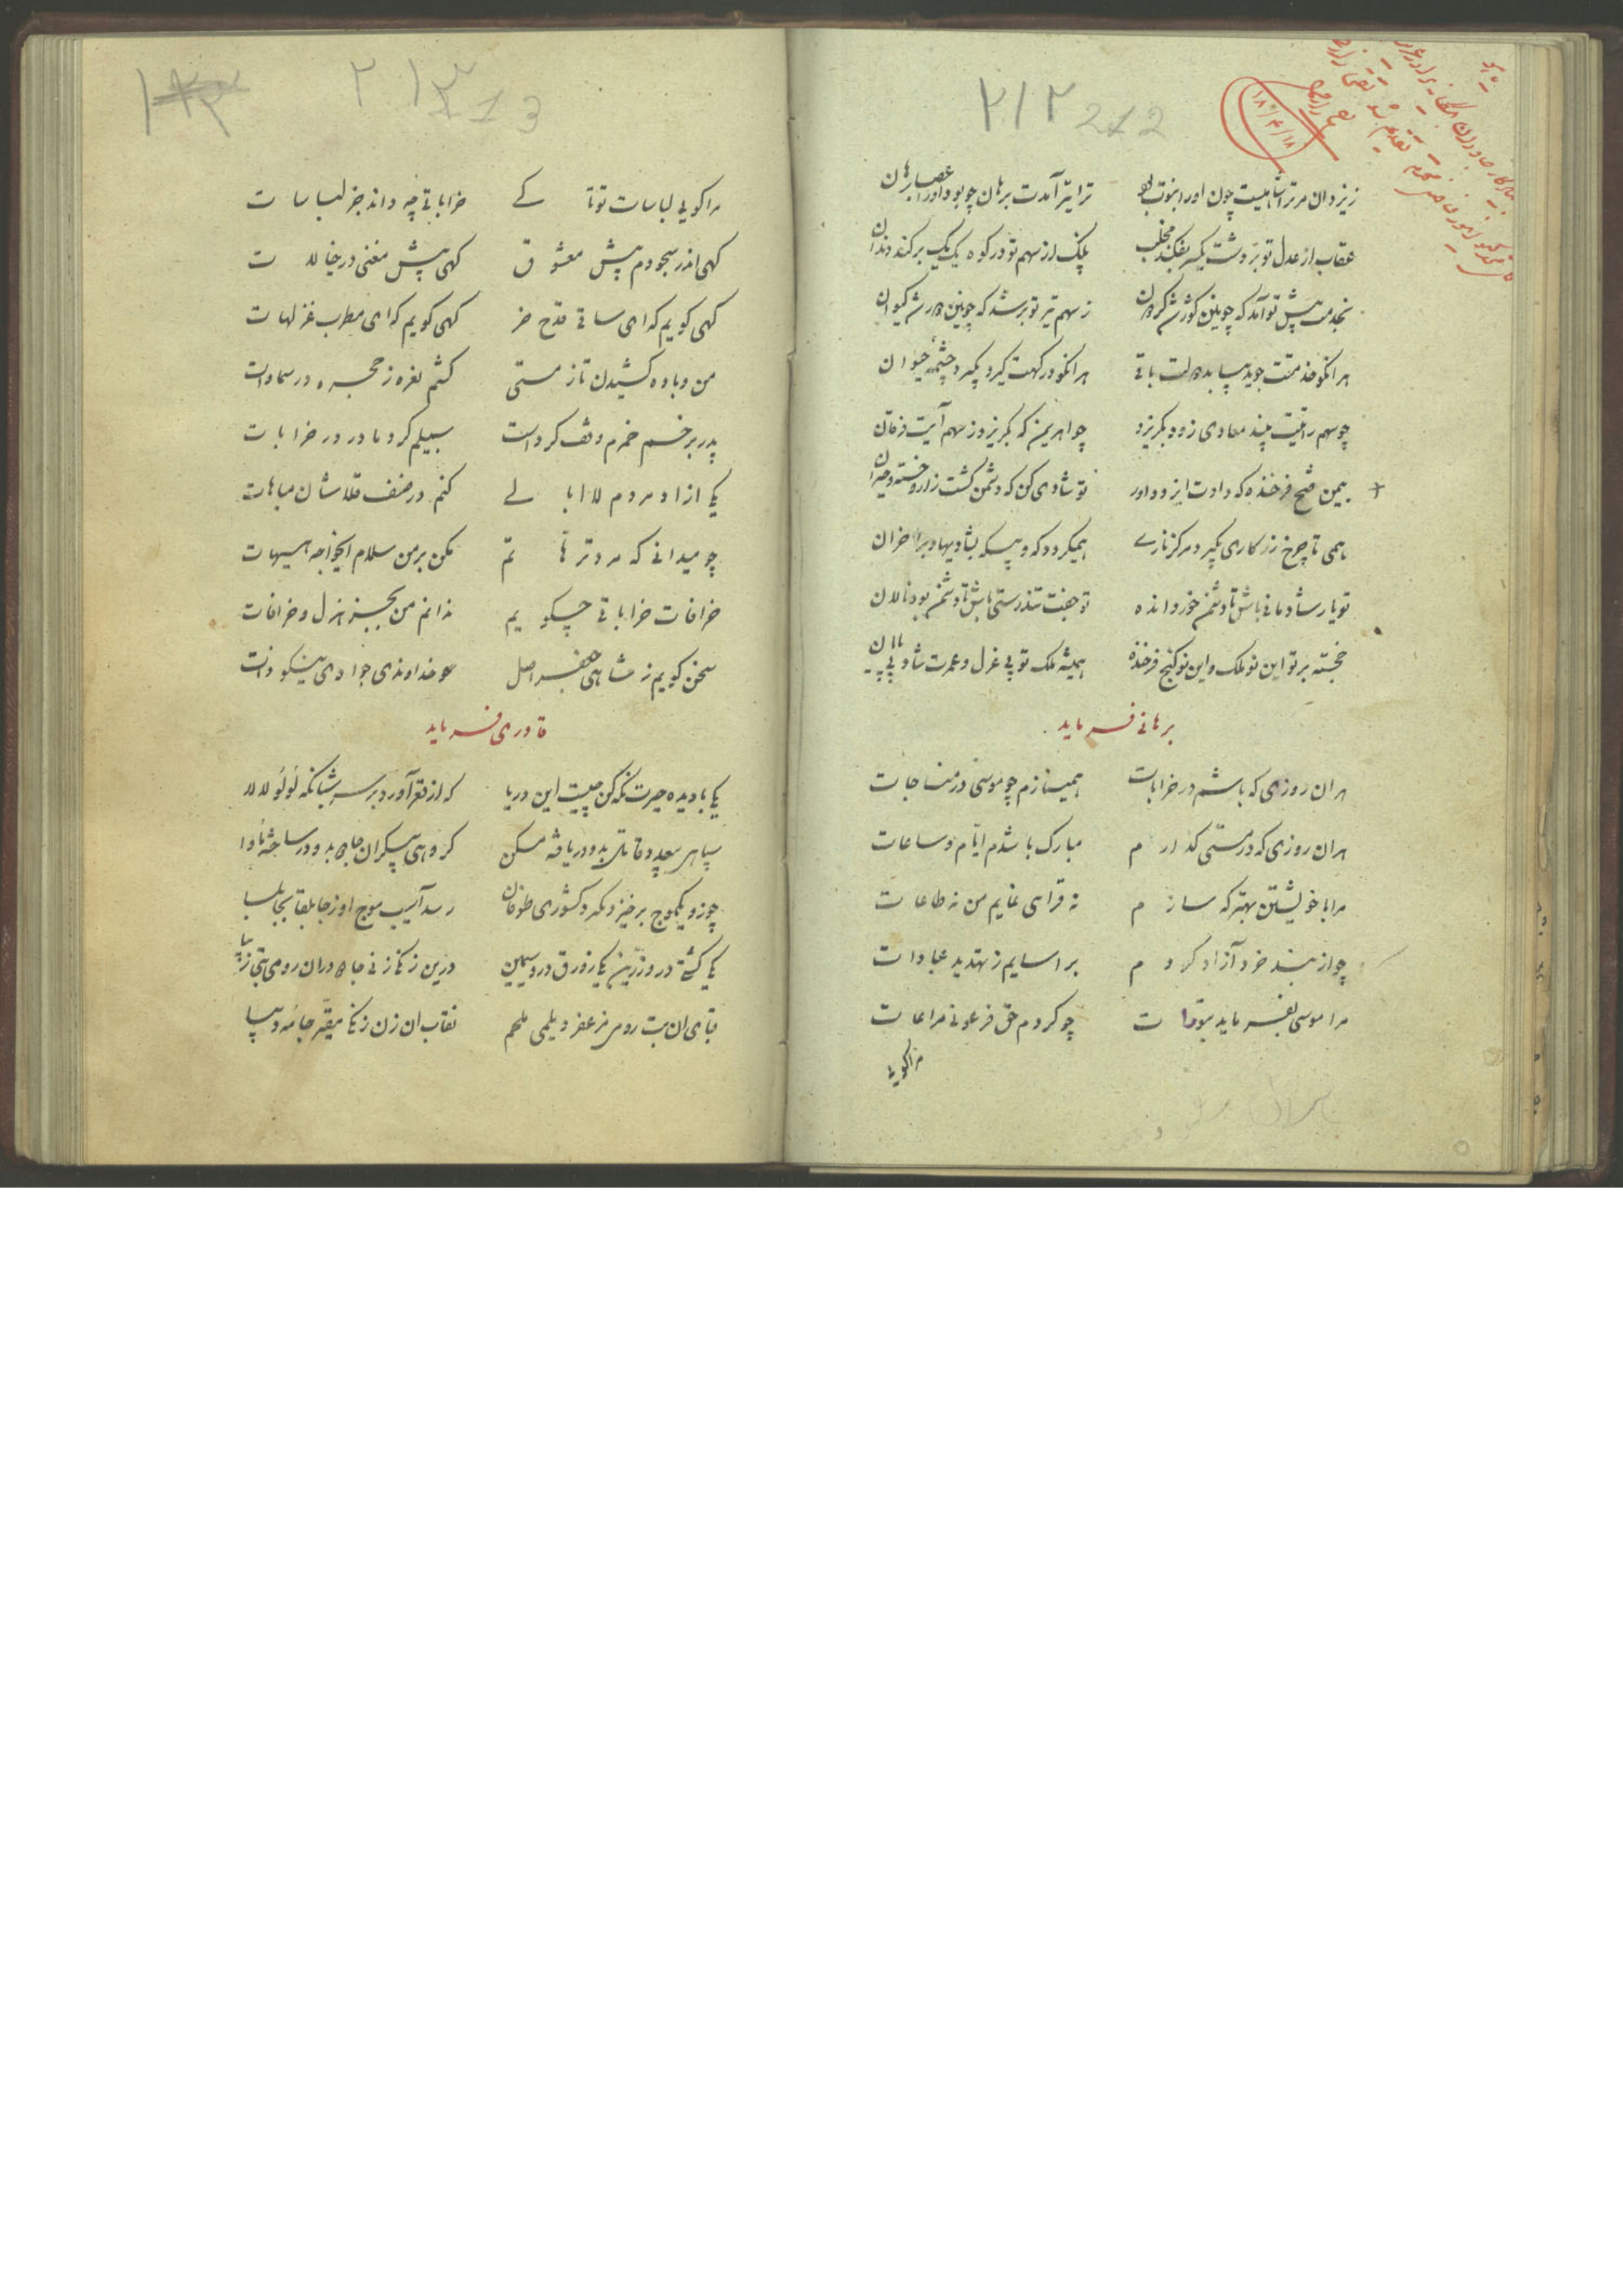 ۲۱۲ 212
۱۸/۴/۱۸
زیزدان مر ترا شاهیست چون اور ابنوت بود ترا تیر آمدت برهان چو بود اورا عصا برهان
عقاب از عدل تو بر دشت یکسر بفکند مخلب پلنگ از سهم تو در کوه یک یک برکند دندان
بخدمت پیش تو آمد که چوبین کورش گردان ز سهم تیر تو برشد که چونین برش کیوان
هر انکو خدمتت جوید بیابد دولت باقی هر انکو در کهت کیرد بکیرد چشمهٔ حیوان
چو سهم رایتت بیند معادی زود بکریزد چو اهریمن که بکریزد ز سهم آیت فرقان
بیمن فتح فرخنده که دادت ایزد داور تو شادی کن که دشمن کشت زار و خسته و حیران
همی تا چرخ زنکاری بکیرد مرکز تاری همیکردد که و بیکه بشادیها و بر احزان
تو یار شادمانی باش تا دشمن خورد انده تو جفت تندرستی باش تا دشمن بود نالان
خجسته بر تو این نو ملک و این نو کنج فرخنده همیشه ملک تو بی عزل و عمرت شاد بی پایان
برهانی فرماید
هر ان روزی که باشم در خرابات همینازم چو موسی در مناجات
هر ان روزی که در مستی کذارم مبارک باشدم ایام و ساعات
مرا با خویشتن بهتر که سازم نه قرایی نمایم من نه طاعات
چو از بند خرد آزاد کردم بر اسایم ز تهدید عبادات
مرا موسی بفرماید بتورات چو کردم حق فرعونی مراعات
مراکویی
۲۱۳ 213
مراکویی لباسات تو تا کی خراباتی چه داند جز لباسات
کهی اندر سجودم پیش معشوق کهی پیش مغنی در خیالات
کهی کویم که ای ساقی قدح خر کهی کویم که ای مطرب غزلهات
من و باده کشیدن تا ز مستی کشم نعره ز حجره در سماوات
پدر بر خم خمرم وقف کردست سبیلم کرد مادر در خرابات
یکی ازاد مردم لا ابالی کنم در صنف قلاشان مباهات
چو میدانی که مرد ترهاتم مکن بر من سلام ایخواجه هیهات
خرافات خراباتی چکویم ندانم من بجز هزل و خرافات
سخن کویم ز شاهی جعفر اصل خداوندی جوادی نیکو ذات
قادری فرماید
یکی با دیده حیرت نکه کن چیست این دریا که از قعر آورد بر سر شبانکه لؤلؤ لالا
سپاهی بیعد و قاتل بدو دریافته مسکن کروهی بیکران جاهل بدو در ساخته ماوا
چو زو یکموج برخیزد مکرد کشوری طوفان رسد آسیب موج او ز جابلقا بجابلسا
یکی کشتی درو زرین یکی زورق درو سیمین درین زنکی زنی جاهل دران رومی بتی زیبا
قبای ان بت رومی مزعفر دیلمی ملحم نقاب ان زن زنکی مقیر جامه دیبا